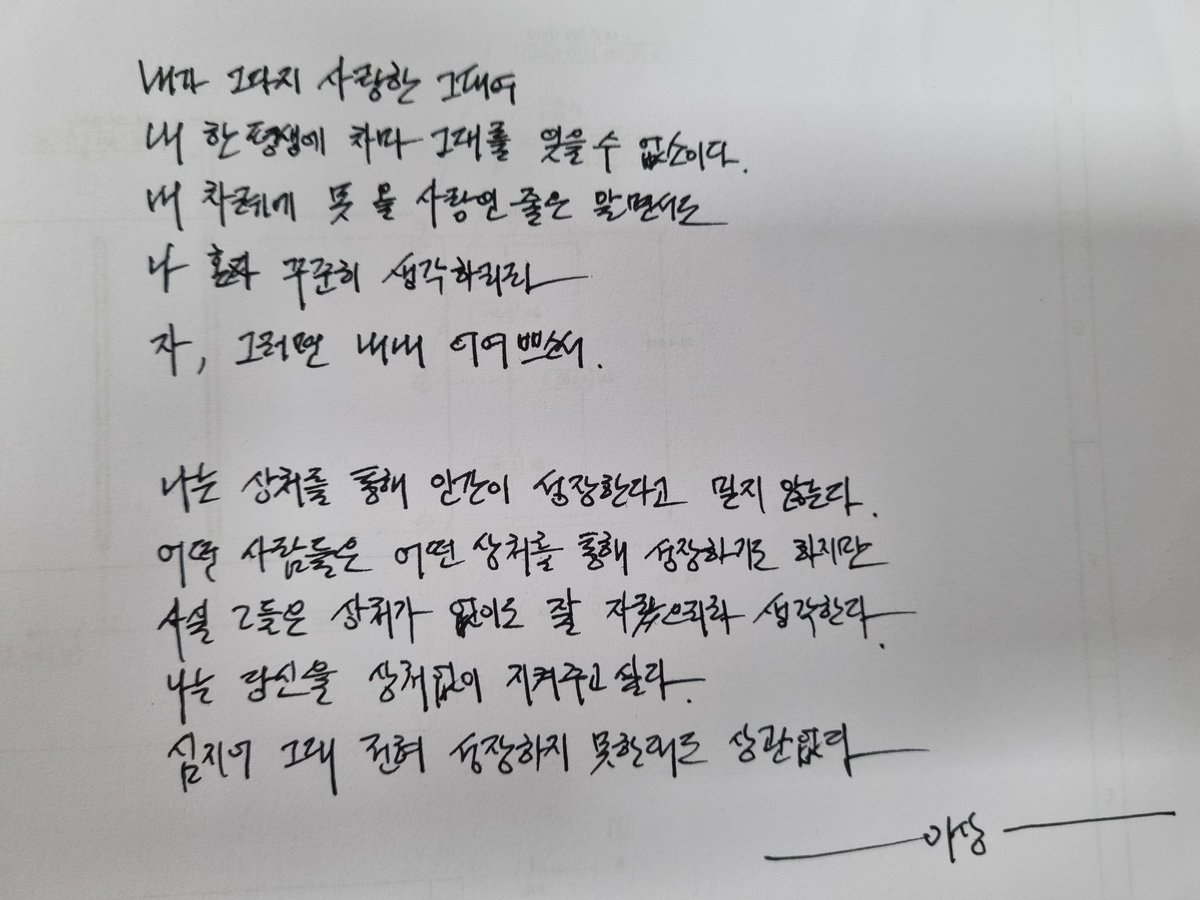 내가 그다지 사랑한 그대여
내 한평생에 차마 그대를 잊을 수 없소이다.
내 차례에 못 올 사랑인 줄은 알면서도
나 혼자 꾸준히 생각하리라
자, 그러면 내내 어여쁘소서.
나는 상처를 통해 인간이 성장한다고 믿지 않는다.
어떤 사람들은 어떤 상처를 통해 성장하기도 하지만
사실 그들은 상처가 없이도 잘 자랐으리라 생각한다.
나는 당신을 상처없이 지켜주고 싶다.
심지어 그대 전혀 성장하지 못한대도 상관없다
이상